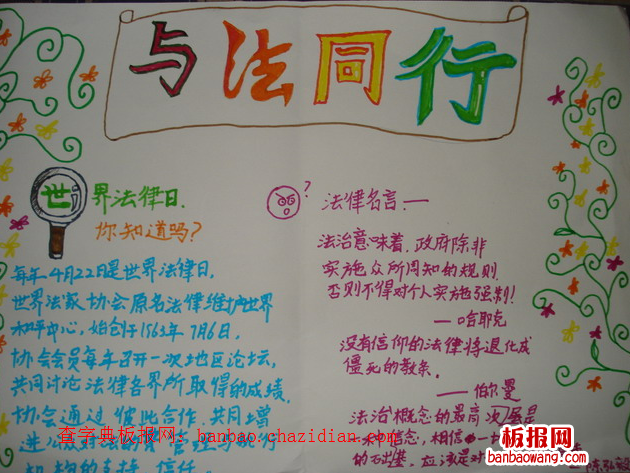 与法同行
世界法律日.
你知道吗?
每年4月22日是世界法律日,
世界法家协会原名法律维护世界
和平中心,始创于1963年7月6日,
协会会员每年召开一次地区论坛,
共同讨论法律各界所取得的成绩.
协会通过彼此合作,共同增
进
的支持、信任
?
法律名言:—
法治意味着,政府除非
实施众所周知的规则,
否则不得对个人实施强制!
—哈耶克
没有信仰的法律将退化成
僵死的教条.
—伯尔曼
法治概念的最高层是
信念,相信一
的基,应该是对
查字典板报网:banbao.chazidian.com
板报网
www.banbaowang.com